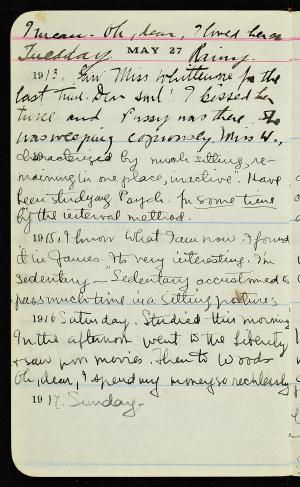 I mean. Oh, dear, I loved her so
Tuesday. MAY 27 Rainy.
1913. Saw Miss Whittemore for the
last time. Dear soul! I kissed her
twice and Pussy was there. She
was weeping copiously. Miss W.,
characterized by much sitting, re-
maining in one place, inactive". Have
been studying Psych. for some time
by the interval method.
1915, I know what I am now. I found
it in James. Its very interesting. I'm
sedentary - "Sedentary accustomed to
pass much time in a sitting postures
1916 Saturday. Studied this morning
In the afternoon went to the Liberty
& saw poor movies. Then to Woods
Oh, dear, I spend my money so recklessly
1917. Sunday.